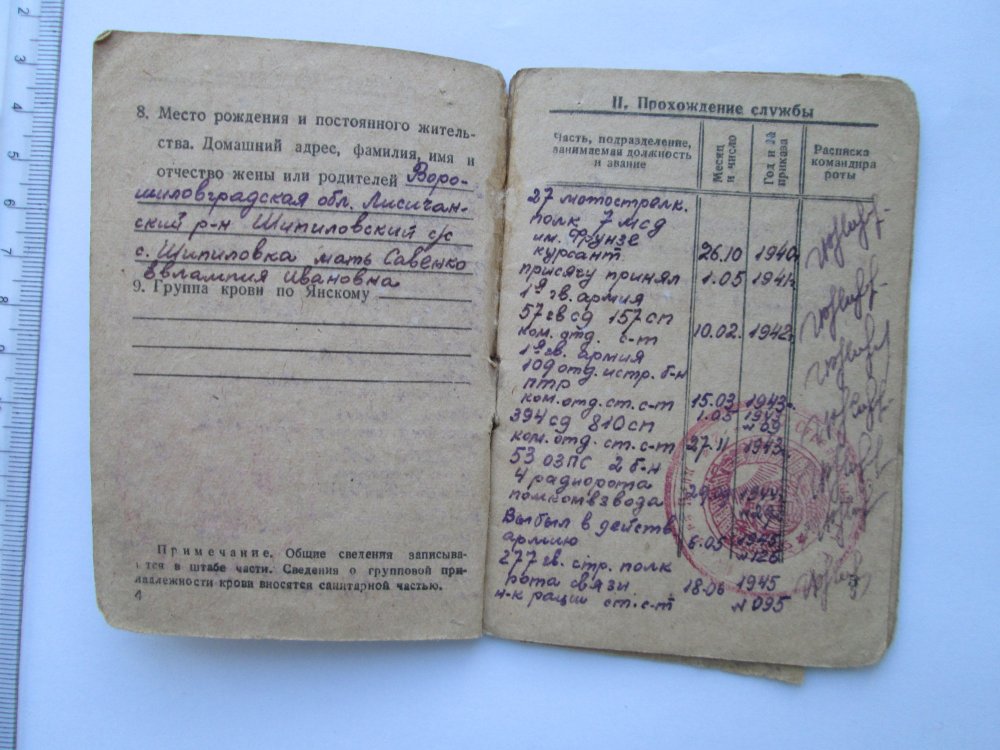 8. Место рождения и постоянного житель-
ства. Домашний адрес, фамилия, имя и
отчество жены или родителей Воро-
шиловградская обл. Лисичан-
ский р-н Шипиловский с/с
с. Шипиловка мать Савенко
Евлампия Ивановна
9. Группа крови по Янскому
Примечание. Общие сведения записыва-
ются в штабе части. Сведения о групповой при-
надлежности крови вносятся санитарной частью.
4
II. Прохождение службы
Часть, подразделение, занимаемая должность и звание
Месяц и число
Год и № приказа
Расписка командира роты
27 мотострелк.
полк 7 мсд
им. Фрунзе
курсант 26.10 1940
присягу принял 1.05 1941
1я гв. армия
57 гв сд 157 сп
ком. отд. с-т 10.02. 1942
1я гв. армия
109 отд. истр. б-н
птр
ком. отд. ст. с-т 15.03 1943
394 сд 810 сп 1.05 1943 №09
ком. отд. ст. с-т 27.11 1943
53 ОЗПС 2 б-н
4 радиорота
помкомвзвода 1944
Выбыл в действ
армию 6.05 1945 №126
277 гв. стр. полк
рота связи 18.06 1945
н-к рации ст. с-т №095